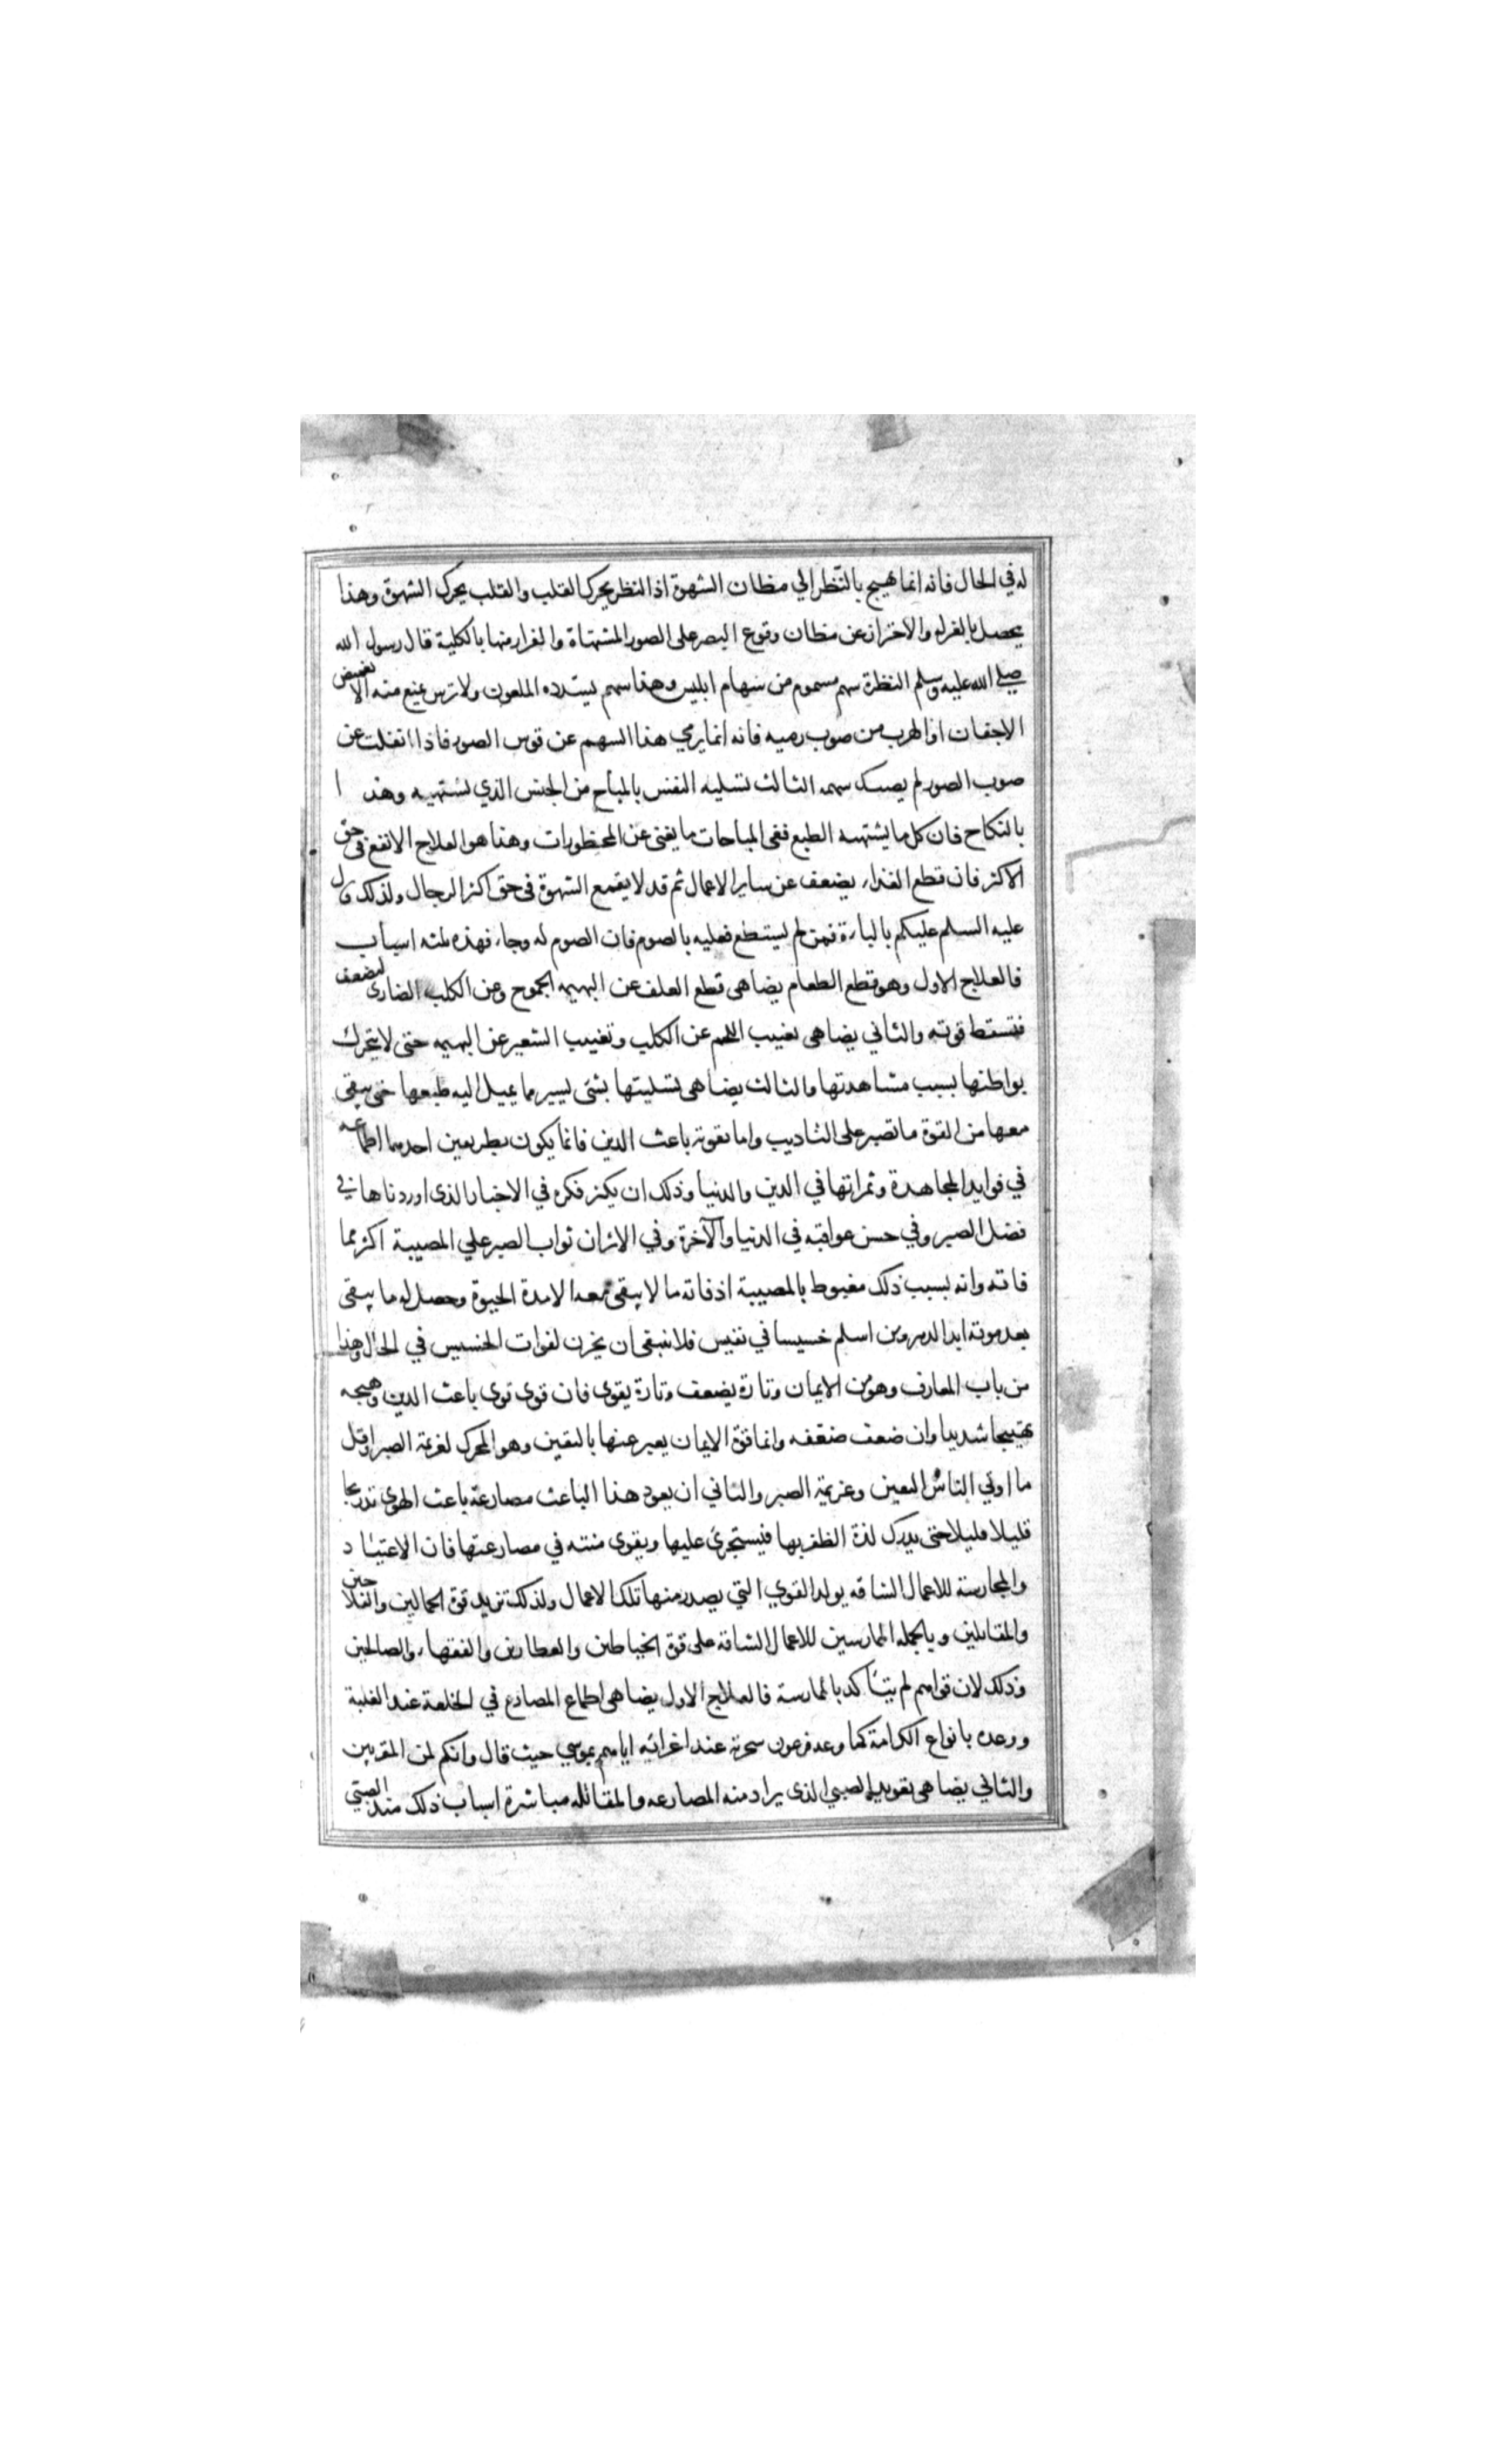 له في الحال فانه انما تهيج بالنظر الي مظان الشهوة اذ النظر يحرك القلب والقلب يحرك الشهوة وهذا
يحصل بالغزله والاحتراز عن مظان وقوع البصر على الصور المشتهاة والفرار منها بالكلية قال رسول الله
صلي الله عليه وسلم النظرة سهم مسموم من سهام ابليس وهذا سهم يسدده الملعون ولا ترس يمنع منه الا تغميض
الاجفان او الهرب من صوب رميه فانه انما يرمي هذا السهم عن قوس الصور فاذا انقلت عن
صوب الصور لم يصبك سهمه الثالث تسليه النفس بالمباح من الجنس الذي تشتهيه وهذا
بالنكاح فان كل ما يشتهيه الطبع ففي المباحات ما يغني عن المحظورات وهذا هو العلاج الانفع في حق
الاكثر فان قطع الغذاء يضعف عن ساير الاعمال ثم قد لا يقمع الشهوة في حق اكثر الرجال ولذلك قال
عليه السلم عليكم بالباءة فمن لم يستطع فعليه بالصوم فان الصوم له وجاء فهذه ثلثه اسباب
فالعلاج الاول وهو قطع الطعام يضاهى قطع العلف عن البهيمه الجموح وعن الكلب الضارى ليضعف
فتسقط قوته والثاني يضاهى تغييب اللحم عن الكلب وتغييب الشعير عن البهيمه حتى لا يتحرك
بواطنها بسبب مشاهدتها والثالث يضاهى تسليتها بشئ يسير ما يميل اليه طبعها حتى يبقى
معها من القوة ما تصبر على التاديب واما تقوته باعث الدين فانما يكون بطريقين احدهما اطماعه
في فوايد المجاهدة وثمراتها في الدين والدنيا وذلك ان يكثر فكره في الاخبار الذى اوردناها في
فضل الصبر وفي حسن عواقبه في الدنيا والآخرة وفي الاثر ان ثواب الصبر علي المصيبة اكثر مما
فاته وانه بسبب ذلك مغبوط بالمصيبة اذ فاته ما لا يبقى معه الا مدة الحيوة وحصل له ما يبقى
بعد موته ابد الدهر ومن اسلم خسيسا في نفيس فلا ينبغى ان يحزن لفوات الخسيس في الحال وهذا
من باب المعارف وهو من الايمان وتارة يضعف وتارة يقوى فان قوى قوى باعث الدين وهيجه
تهييجا شديدا وان ضعف ضعفه وانما قوة الايمان يعبر عنها باليقين وهو المحرك لعزيمة الصبر واقل
ما اوتي الناس اليقين وعزيمة الصبر والثاني ان يعود هذا الباعث مصارعة باعث الهوى تدريجا
قليلا قليلا حتى يدرك لذة الظفر بها فيستجرئ عليها ويقوى منته في مصارعتها فان الاعتياد
والمحارسة للاعمال الشاقه يولد القوي التي يصدر منها تلك الاعمال ولذلك تزيد قوة الحمالين والفلاحين
والمقاتلين وبالجمله الممارسين للاعمال الشاقه على قوة الخياطين والعطارين والفقهاء والصالحين
وذلك لان قواهم لم يتأكد بالممارسة فالعلاج الاول يضاهى اطماع المصارع في الخلعة عند الغلبة
ووعده بانواع الكرامة كما وعد فرعون سحرته عند اغرائه اياهم بموسي حيث قال وانكم لمن المقربين
والثاني يضاهى تعويد الصبي الذى يراد منه المصارعه والمقاتله مباشرة اسباب ذلك منذ الصبي